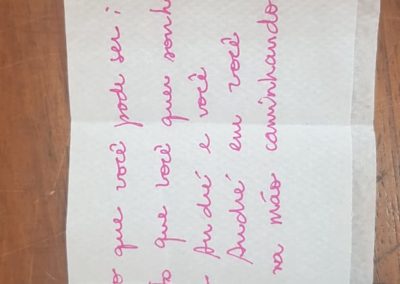 o que você pode ser i
o que você quer sonh
André e você
André em você
na mão caminhando